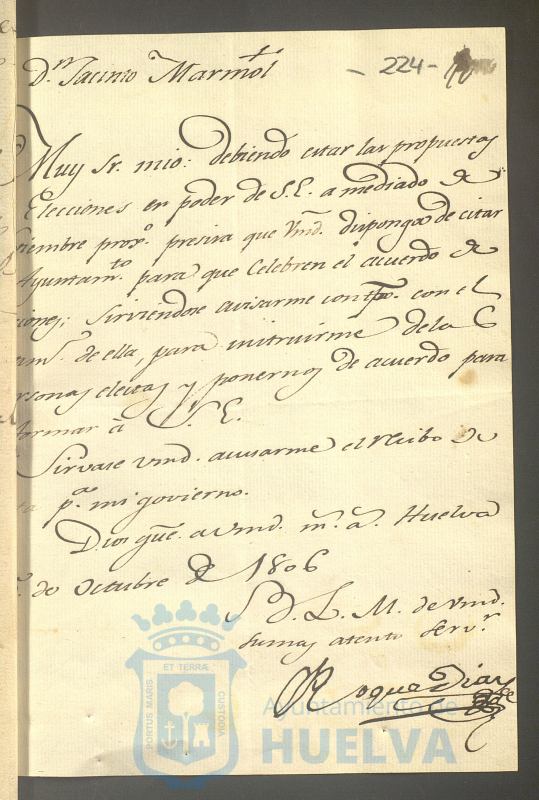 Dn. Jacinto Marmol
- 224 -
Muy Sr. mio: Debiendo estar las propuestas
Elecciones en poder de S.E. a mediado de
iembre proxo. precisa que Vmd. disponga de citar
Ayuntamto. para que Celebren el acuerdo de
ciones; sirviendose avisarme con tpo. con el
de ella, para instruirme de las
ersonas electas y ponernos de acuerdo para
formar à S.E.
Sirvase Vmd. avisarme el recibo de
ta pa. mi govierno.
Dios gue. a Vmd. ms. as. Huelva
de Octubre de 1806
B. L. M. de Vmd.
su mas atento servr.
Roque Diaz
PORTUS MARIS
ET TERRÆ
CUSTODIA
Ayuntamiento de
HUELVA